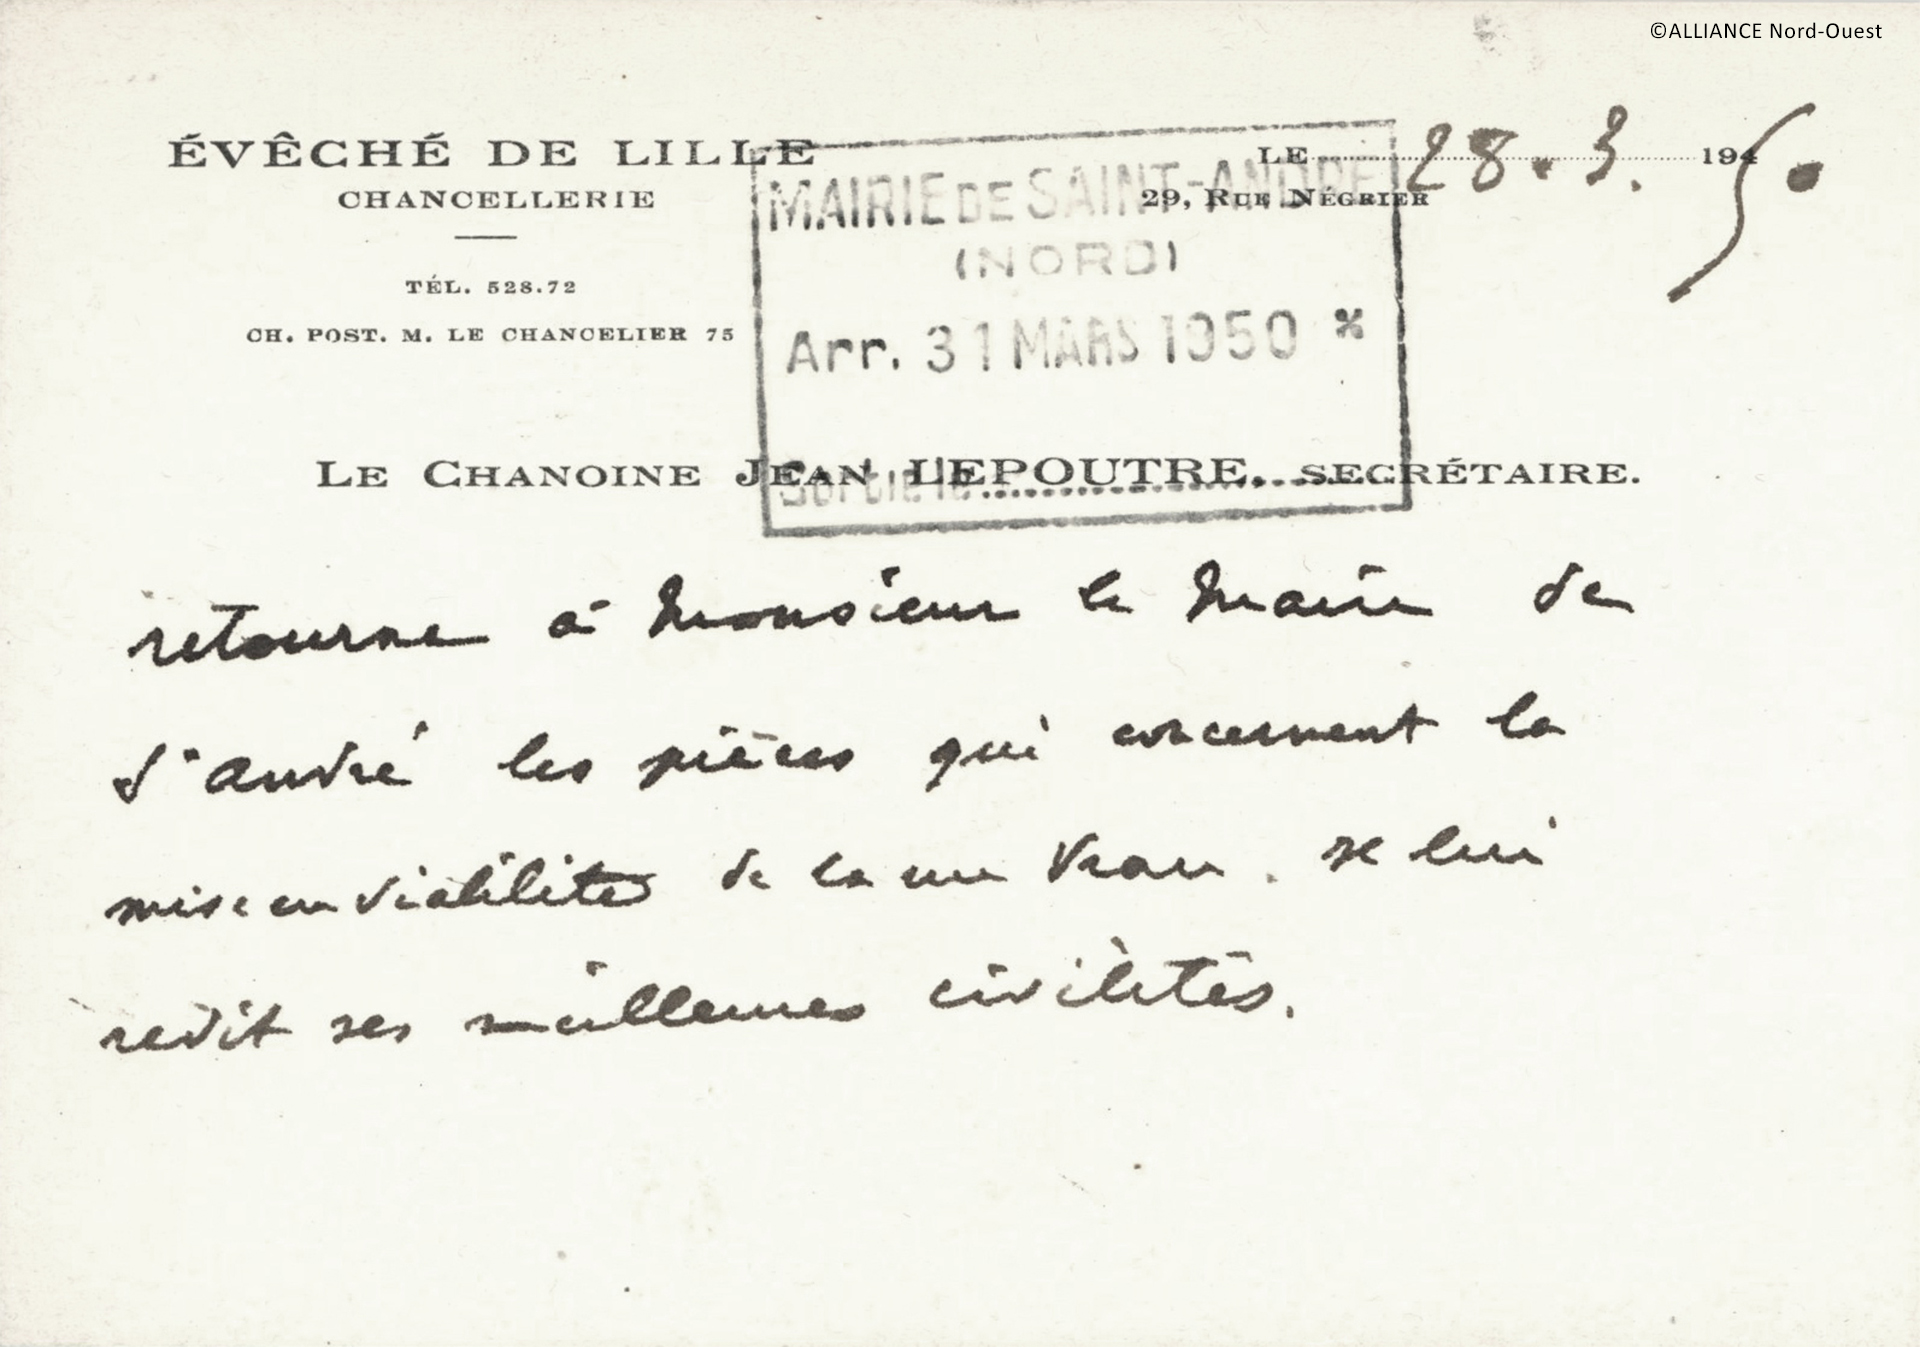 ©ALLIANCE Nord-Ouest
ÉVÊCHÉ DE LILLE
CHANCELLERIE
TÉL. 528.72
CH. POST. M. LE CHANCELIER 75
LE 28.3. 1950
29, RUE NÉGRIER
MAIRIE DE SAINT-ANDRÉ
(NORD)
Arr. 31 MARS 1950 *
Sortie le
LE CHANOINE JEAN LEPOUTRE, SECRÉTAIRE.
retourne à Monsieur le Maire de
St André les pièces qui concernent la
mise en viabilité de la rue Vrau. se lui
redit ses meilleures civilités.